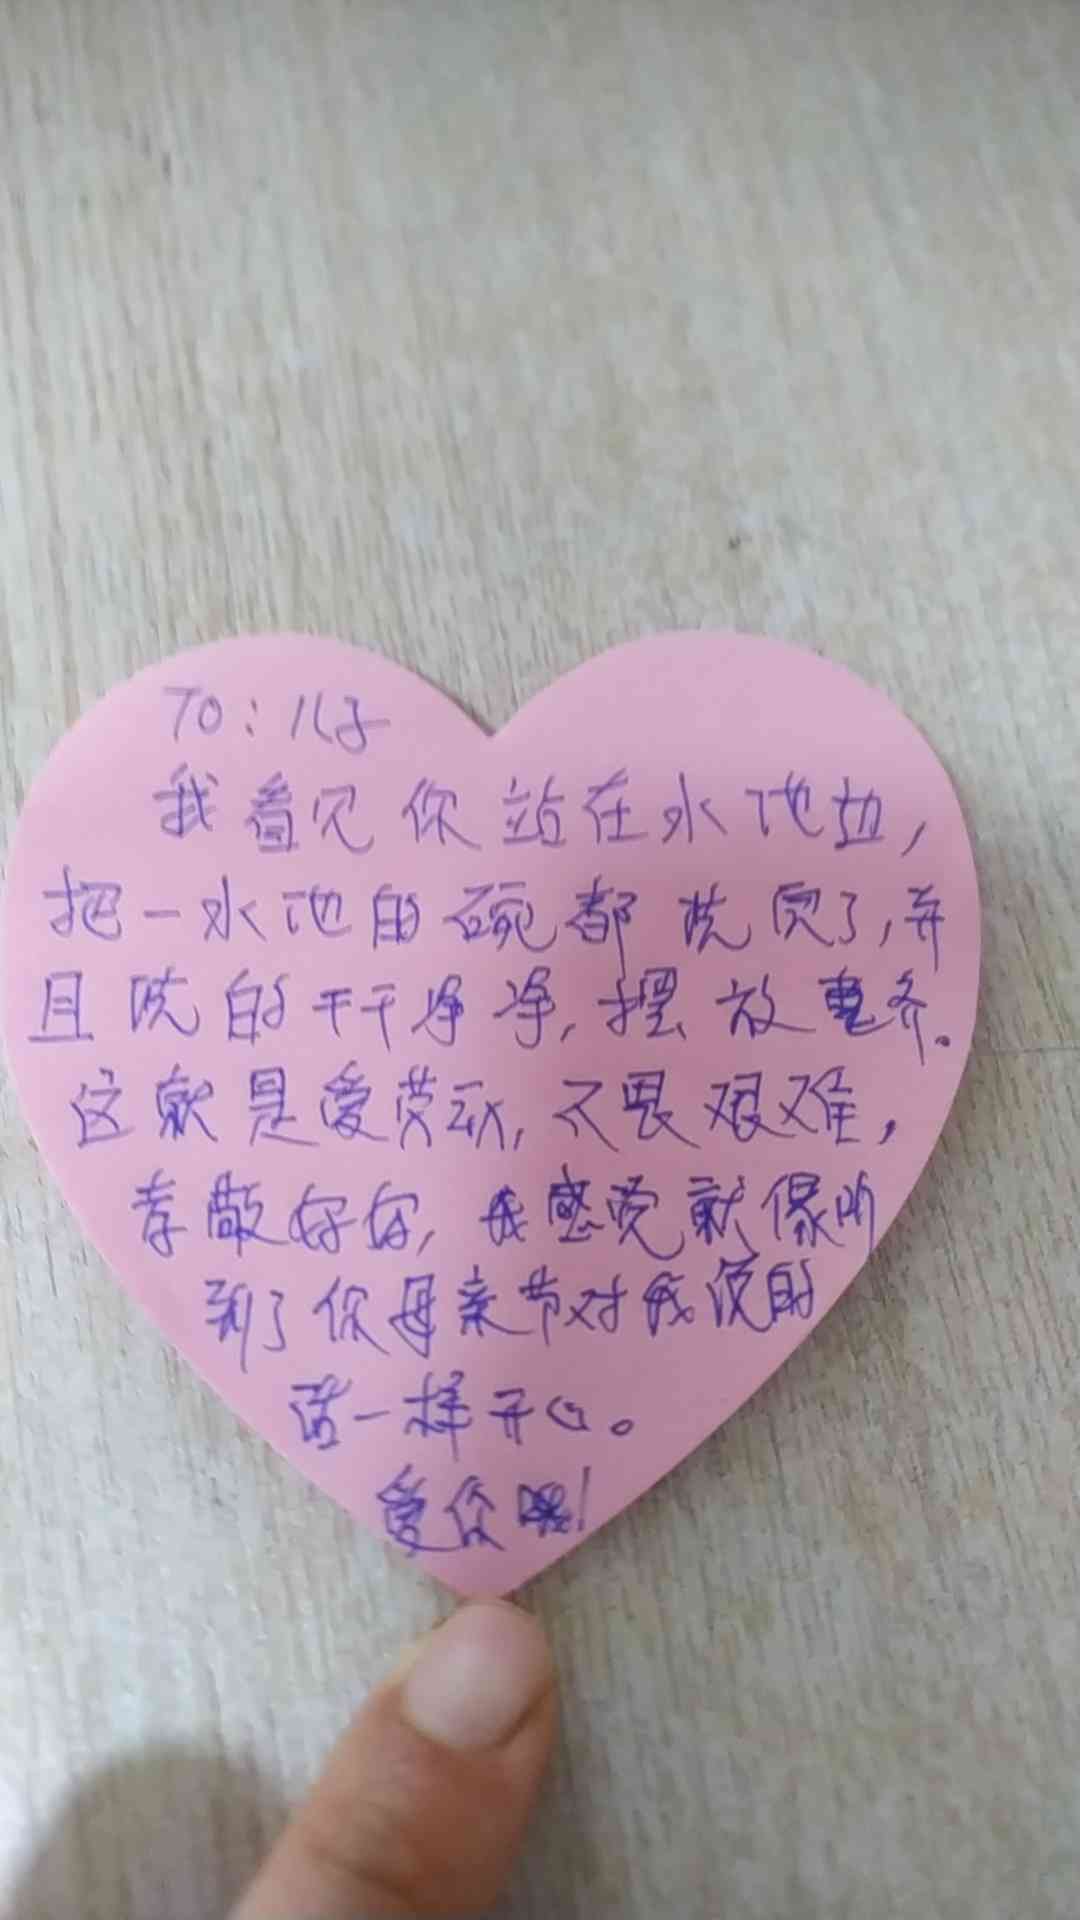 TO：儿子
我看见你站在水池边，
把一水池的碗都洗完了，并
且洗的干干净净，摆放整齐。
这就是爱劳动，不畏艰难，
孝敬好好，我感觉就像听
到了你母亲节对我说的
话一样开心。
爱你！